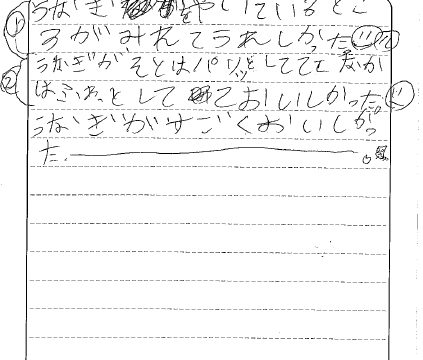 ① うなぎをやいているとこ
ろがみれてうれしかった
② うなぎが そとはパリッとしてて なか
はふわっとして ておいしかった
うなぎがすごくおいしかっ
た。